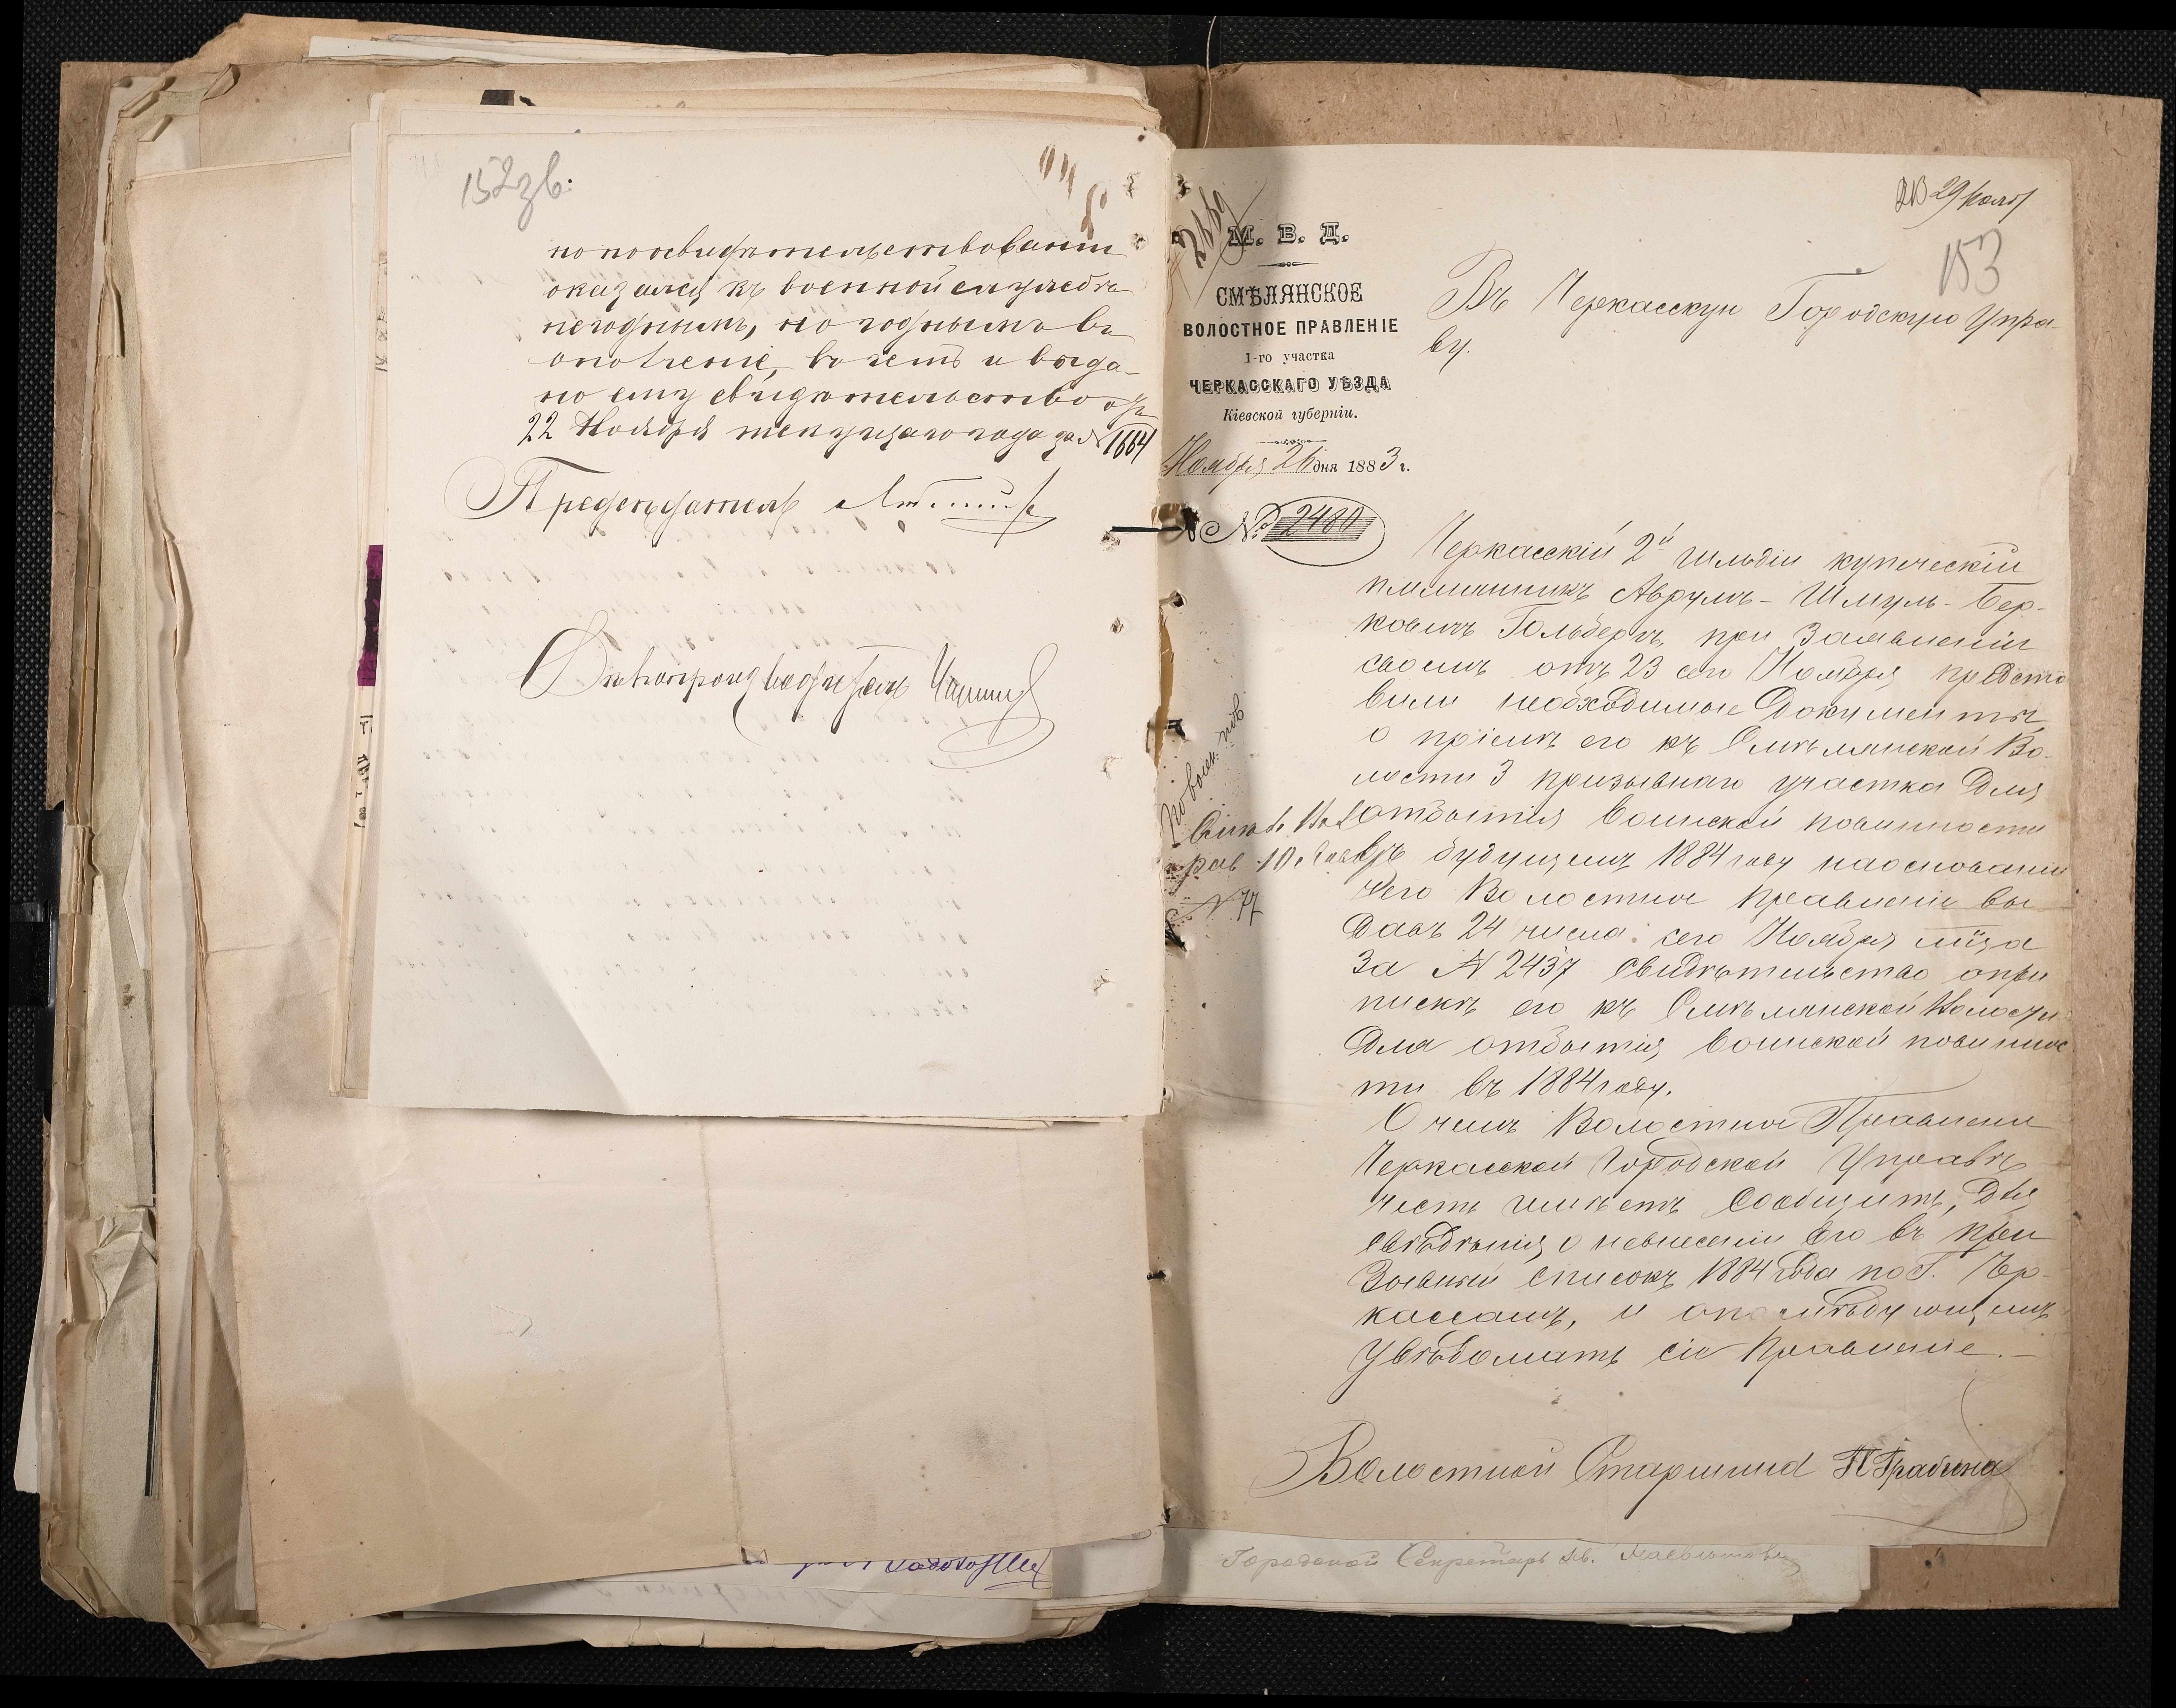 152 зв.
но по освидѣтельствованіи
оказался къ военной службѣ
негоднымъ, но годнымъ въ
ополченіе, въ чемъ и выда-
но ему свидѣтельство отъ
22 Ноября текущаго года за № 1664
Предсѣдатель
Дѣлопроизводитель
29 Нояб
153
М. В. Д.
СМѢЛЯНСКОЕ
ВОЛОСТНОЕ ПРАВЛЕНІЕ
1-го участка
ЧЕРКАССКАГО УѢЗДА
Кіевской губерніи.
Ноября 26 дня 1883 г.
№ 2480
Въ Черкасскую Городскую Упра-
ву.
Черкасскій 2й гильдіи купеческій
племянникъ Аврумъ-Шмуль Бер-
ковичъ Гольбергъ, при заявленіи
своемъ отъ 23 сего Ноября предста
вилъ необходимые документы,
о пріемѣ его къ Смѣлянской Во-
лости 3 призывнаго участка для
отбытія воинской повинности
въ будущемъ 1884 году на основаніи
чего Волостное Правленіе вы
давъ 24 числа сего Ноября мѣсяца
за № 2437 свидѣтельство о при
пискѣ его къ Смѣлянской Волости
для отбытія воинской повиннос
ти въ 1884 году.
О чемъ Волостное Правленіе
Черкасской Городской Управѣ
честь имѣетъ сообщить, для
свѣдѣнія о невнесеніи его въ при
зывный списокъ 1884 года по г. Чер-
кассамъ, и о послѣдующемъ
увѣдомить сіе Правленіе.-
Волостной Старшина П Грабина
№ 77
Городской Секретарь